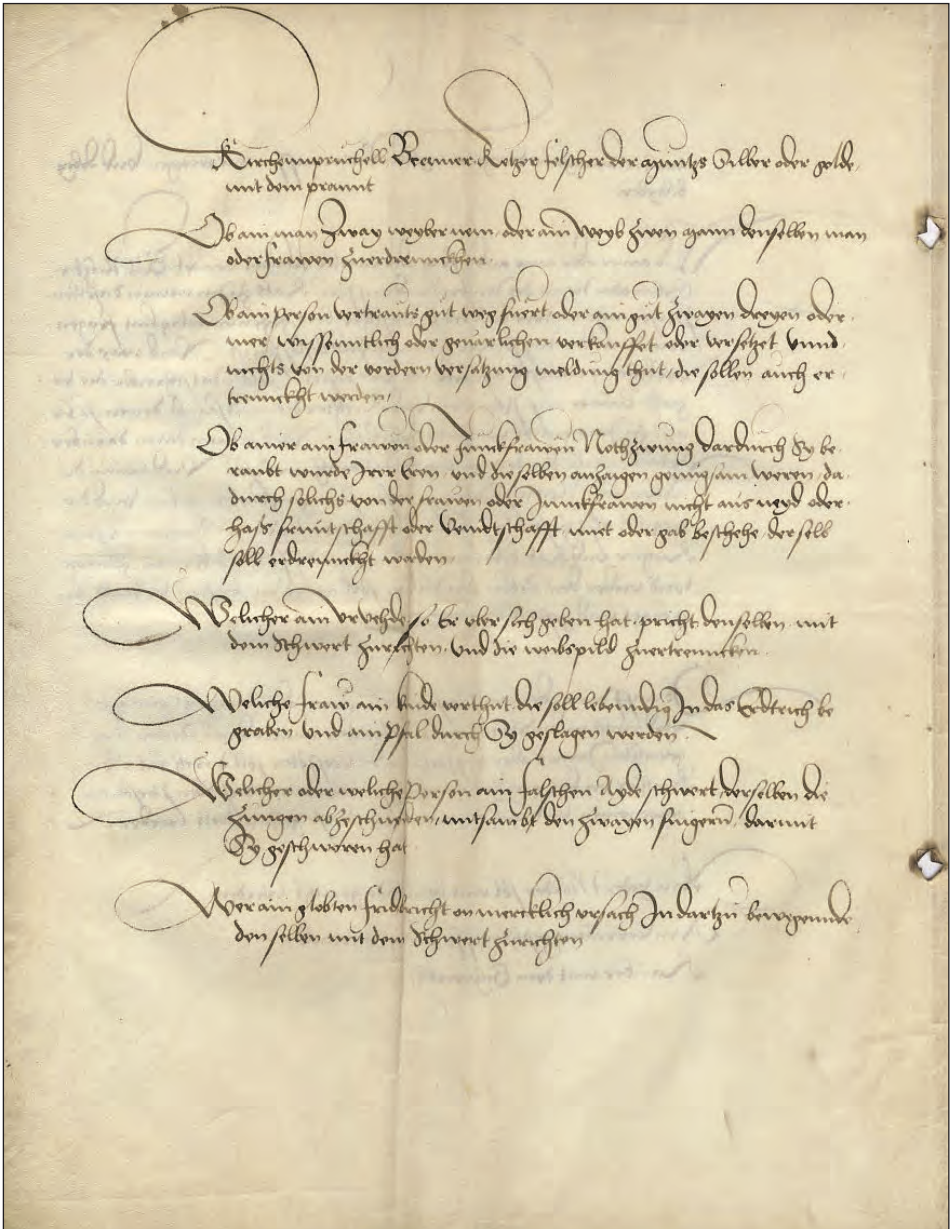 Kirchennprüchell Brenner Ketzer felscher der Müntzs Silber oder golde
mit dem prannt
Ob ain man Zway weyber nem oder ain Weyb Zwen Mann denselben man
oder frawen Zuerdrennckhen
Ob ain person vertrauts gut weg fuert oder ain gut Zwayen dreyen oder
mer wissenntlich oder geuarlichen verkauffet oder versetzet vnnd
nichts von der vordern versatzung meldung thut, die sollen auch er
trennckht werden,
Ob ainer ain frawen oder Junckfrawen Nothzwung dardurch Sy be
raubt wurde Irer Eren und dieselben anzaigen genugsam weren da
durch solichs von der frawen oder Junckfrawen nicht aus neyd oder
hass freuntschafft oder Veindtschafft miet oder gab beschehe derselb
soll erdrennckht werden
Welicher ain vrvehde so Er vber sich geben hat pricht denselben mit
dem Schwert Zurichten und die weibspild Zuertrenncken
Weliche fraw ain kinde verthut die soll lebenndig In das Erdtrich be
graben vnd ain Pfal durch Sy geslagen werden
Welicher oder weliche Person ain falschen Ayde schwert derselben die
Zungen abgeschniten, mitsambt den Zwayen fingern darmit
Sy geschworen hat
Wer ain globten frid bricht on mercklich vrsach In dartzu bewegennde
den selben mit dem Schwert Zurichten